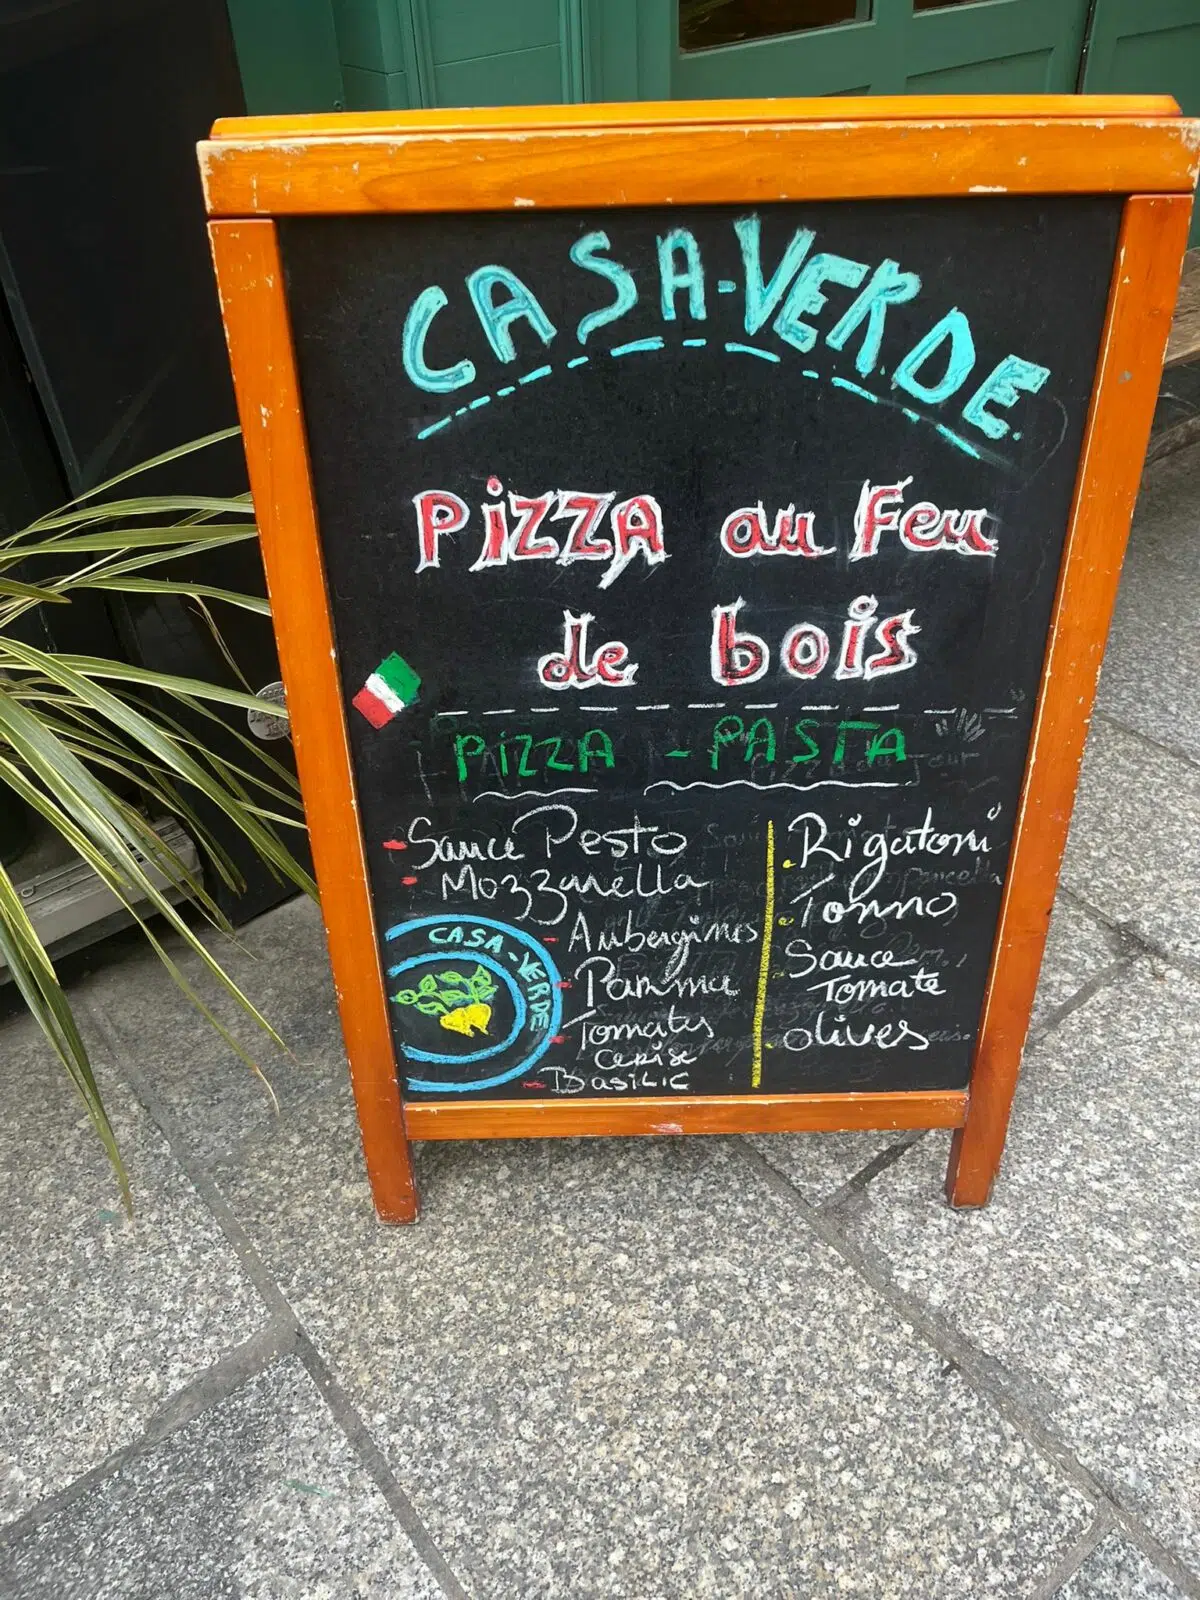 CASA-VERDE.
PIZZA au Feu
de bois
PIZZA - PASTA
- Sauce Pesto
- Mozzarella
- Aubergines
- Parma
- Tomates
Cerise
- Basilic
. Rigatoni
. Tonno
. Sauce
Tomate
. olives
CASA-VERDE